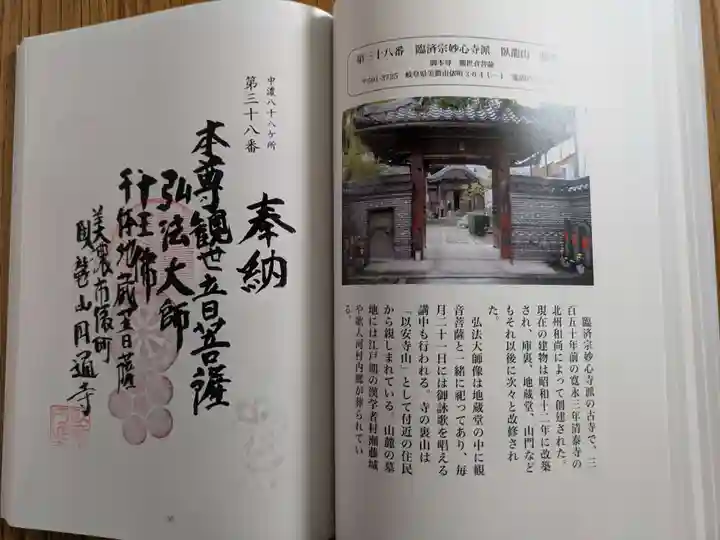 奉納
中濃八十八ケ所
第三十八番
本尊観世音菩薩
弘法大師
十王佛
千体地蔵菩薩
美濃市俵町
臥龍山円通寺
第三十八番 臨済宗妙心寺派 臥龍山
御本尊 観世音菩薩
岐阜県美濃市俵町
臨済宗妙心寺派の古寺で、三
百五十年前の寛永三年清泰寺の
北州和尚によって創建された。
現在の建物は昭和十二年に改築
され、庫裏、地蔵堂、山門など
もそれ以後に次々と改修され
た。
弘法大師像は地蔵堂の中に観
音菩薩と一緒に祀ってあり、毎
月二十一日には御詠歌を唱える
講中も行われる。寺の裏山は
「以安寺山」として付近の住民
から親しまれている。山麓の墓
地には江戸期の漢学者村瀬藤城
や歌人河村内郷が葬られてい
る。